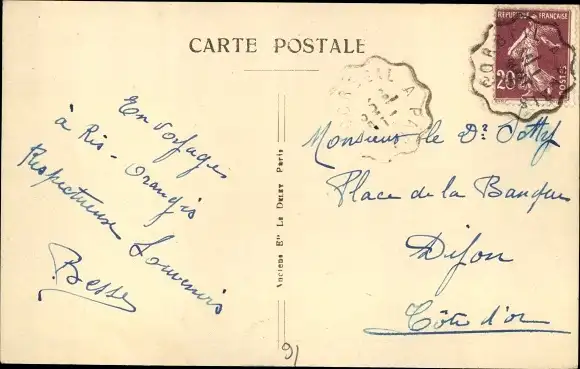 CARTE POSTALE
RÉPUBLIQUE FRANÇAISE
20
POSTES
CORBEIL A PA
En voyage
à Ris-Orangis
Respectueux Souvenirs
Besse
Anciens Ets Le Deley Paris
Monsieur le Dr
Place de la Banque
Dijon
Côte d'or
91